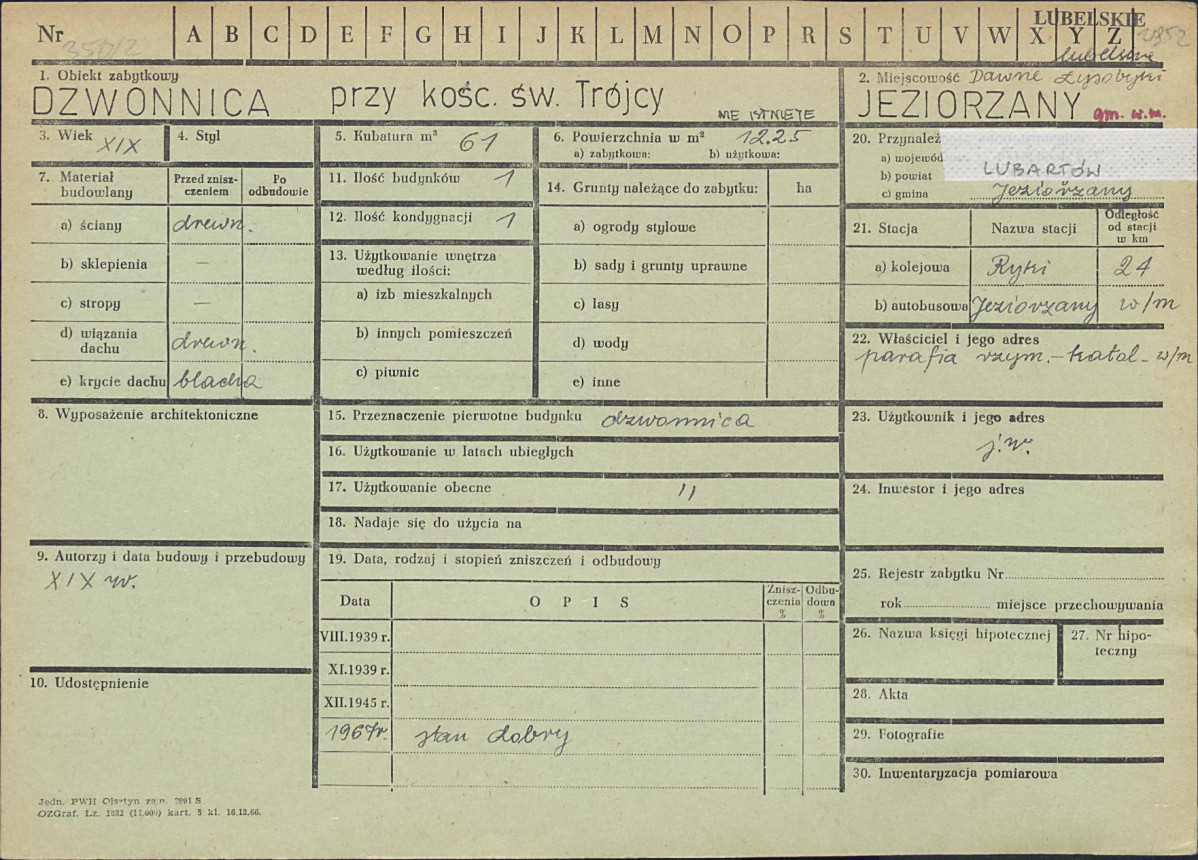 Nr
A B C D E F G H I J K L M N O P R S T U V W X Y Z
LUBELSKIE
lubelskie
1. Obiekt zabytkowy
DZWONNICA przy kośc. św. Trójcy
NIE ISTNIEJE
2. Miejscowość Dawne Łysobyki
JEZIORZANY gm. w.m.
3. Wiek XIX
4. Styl
5. Kubatura m³ 61
6. Powierzchnia w m² 12.25
a) zabytkowa: b) użytkowa:
7. Materiał budowlany
Przed zniszczeniem
Po odbudowie
a) ściany drewn.
b) sklepienia —
c) stropy —
d) wiązania dachu drewn.
e) krycie dachu blacha
8. Wyposażenie architektoniczne
9. Autorzy i data budowy i przebudowy
XIX w.
10. Udostępnienie
11. Ilość budynków 1
12. Ilość kondygnacji 1
13. Użytkowanie wnętrza
według ilości:
a) izb mieszkalnych
b) innych pomieszczeń
c) piwnic
14. Grunty należące do zabytku: ha
a) ogrody stylowe
b) sady i grunty uprawne
c) lasy
d) wody
e) inne
15. Przeznaczenie pierwotne budynku dzwonnica
16. Użytkowanie w latach ubiegłych
17. Użytkowanie obecne "
18. Nadaje się do użycia na
19. Data, rodzaj i stopień zniszczeń i odbudowy
Data OPIS Zniszczenia % Odbudowa %
VIII.1939 r.
XI.1939 r.
XII.1945 r.
1967r. stan dobry
20. Przynależ
a) wojewód
b) powiat LUBARTÓW
c) gmina Jeziorzany
21. Stacja Nazwa stacji Odległość od stacji w km
a) kolejowa Ryki 24
b) autobusowa Jeziorzany w/m
22. Właściciel i jego adres
parafia rzym.-katol. w/m
23. Użytkownik i jego adres
j.w.
24. Inwestor i jego adres
25. Rejestr zabytku Nr
rok miejsce przechowywania
26. Nazwa księgi hipotecznej
27. Nr hipoteczny
28. Akta
29. Fotografie
30. Inwentaryzacja pomiarowa
Jedn. PWH Olsztyn zam. 7991 S
OZGraf. Lz. 1882 (11.000) kart. 5 kl. 16.12.66.